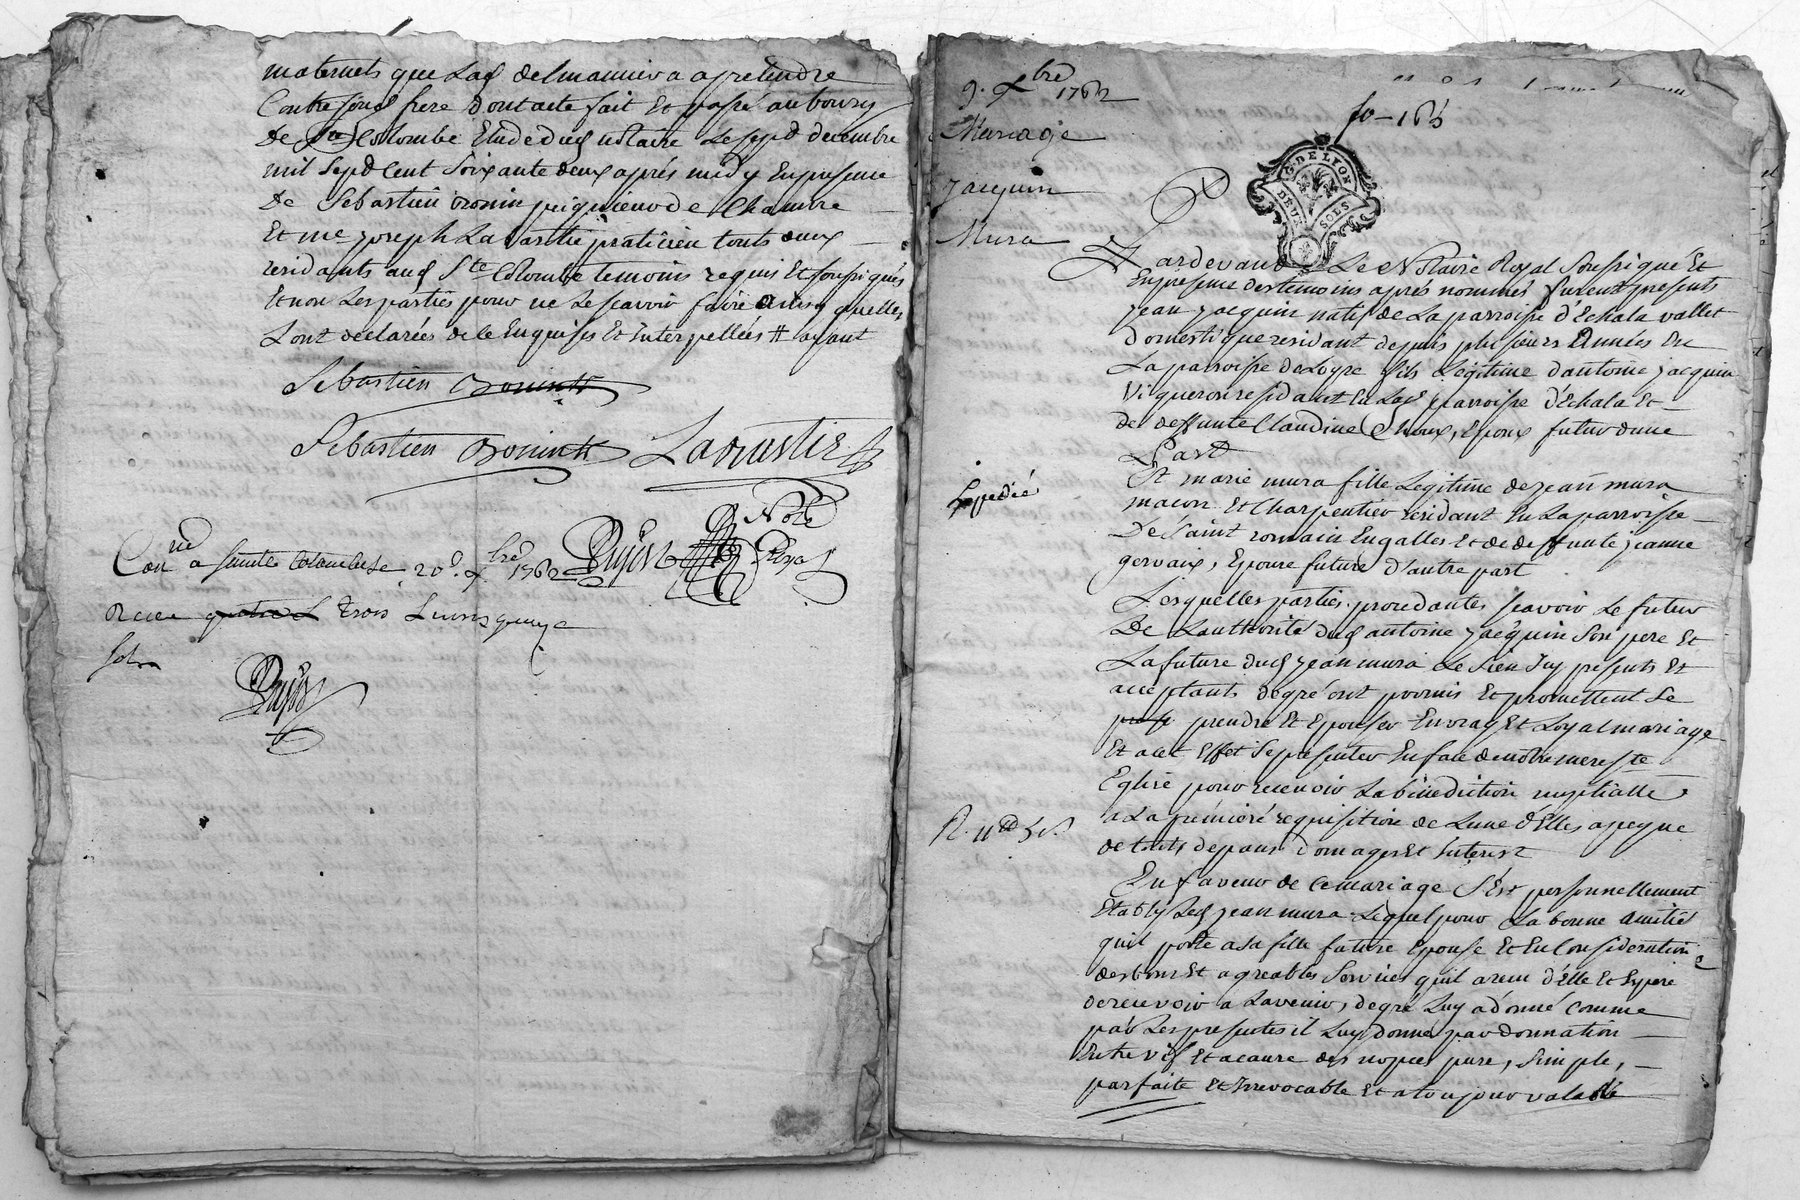 maternels que Lad delmanniere a pretendre
Contre sond frere dont acte fait Et passé au bourg
De Ste Colombe Etude dud notaire Le sept decembre
mil Sept Cent Soixante deux aprés midy En presence
De Sebastien Bronin de Chambre
Et me joseph La pratitien touts deux
residants aud Ste Colombe temoins requis Et soussignés
Et non Les parties pour ne Le scavoir faire ainsy quelles
L'ont declarées de ce Enquises Et Interpellées
Sebastien
Sebastien
Notre
Royal
Conlle a Sainte Colombe 20e Xbre 1762
Recu quatre L trois Livres quinze
Sols
9. Xbre 1762
fo - 165
Mariage
Jacquin
Mura
G. DE LION
DEUX SOLS
Pardevant Le Notaire Royal Soussigné Et
En presence des temoins aprés nommés furent presents
Jean Jacquin natif de La parroisse d'Echala vallet
domestique residant depuis plusieurs Années En
La parroisse de Loyre fils Legitime d'antoine Jacquin
Vigneron residant En Lad parroisse d'Echala Et
de deffunte Claudine Choux, Epoux futur d'une
Part
Et marie mura fille Legitime de Jean mura
macon Et Charpentier residant En La parroisse
De Saint romain En galles Et de deffunte jeanne
gervaix, Epouse future d'autre part
Expedié
Lesquelles parties procedantes scavoir Le futur
De L'authorité dud antoine Jacquin Son pere Et
La future dud Jean mura Le Sien Icy presents Et
acceptants de gré ont promis Et promettent Se
prendre Et Epouser En vray Et Loyal mariage
Et a cet Effet Se presenter En face de notre mere Ste
Eglise pour recevoir La bénédiction nuptialle
a La première requisition de L'une d'Elles a peyne
de touts depans domages Et Interest
En faveur de Ce mariage S'Est personnellement
Etably Led Jean mura Lequel pour La bonne Amitié
quil porte a Sa fille future Epouse Et En Consideration
des bons Et agreables Services quil a recu d'Elle Et Espere
de recevoir a L'avenir, de gré Luy a donné Comme
par Les presentes il Luy donne par donnation
Entre vif Et a cause des nopces pure, Simple,
parfaite Et Irrevocable Et a toujour valable